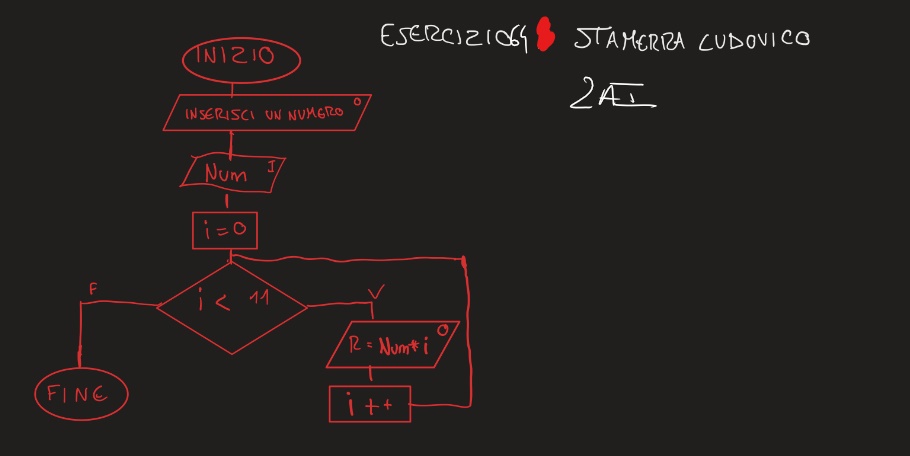 ESERCIZIO64 STAMERRA LUDOVICO
2AI
INIZIO
INSERISCI UN NUMERO O
Num I
i=0
i < 11
F
V
R = Num*i O
i ++
FINE